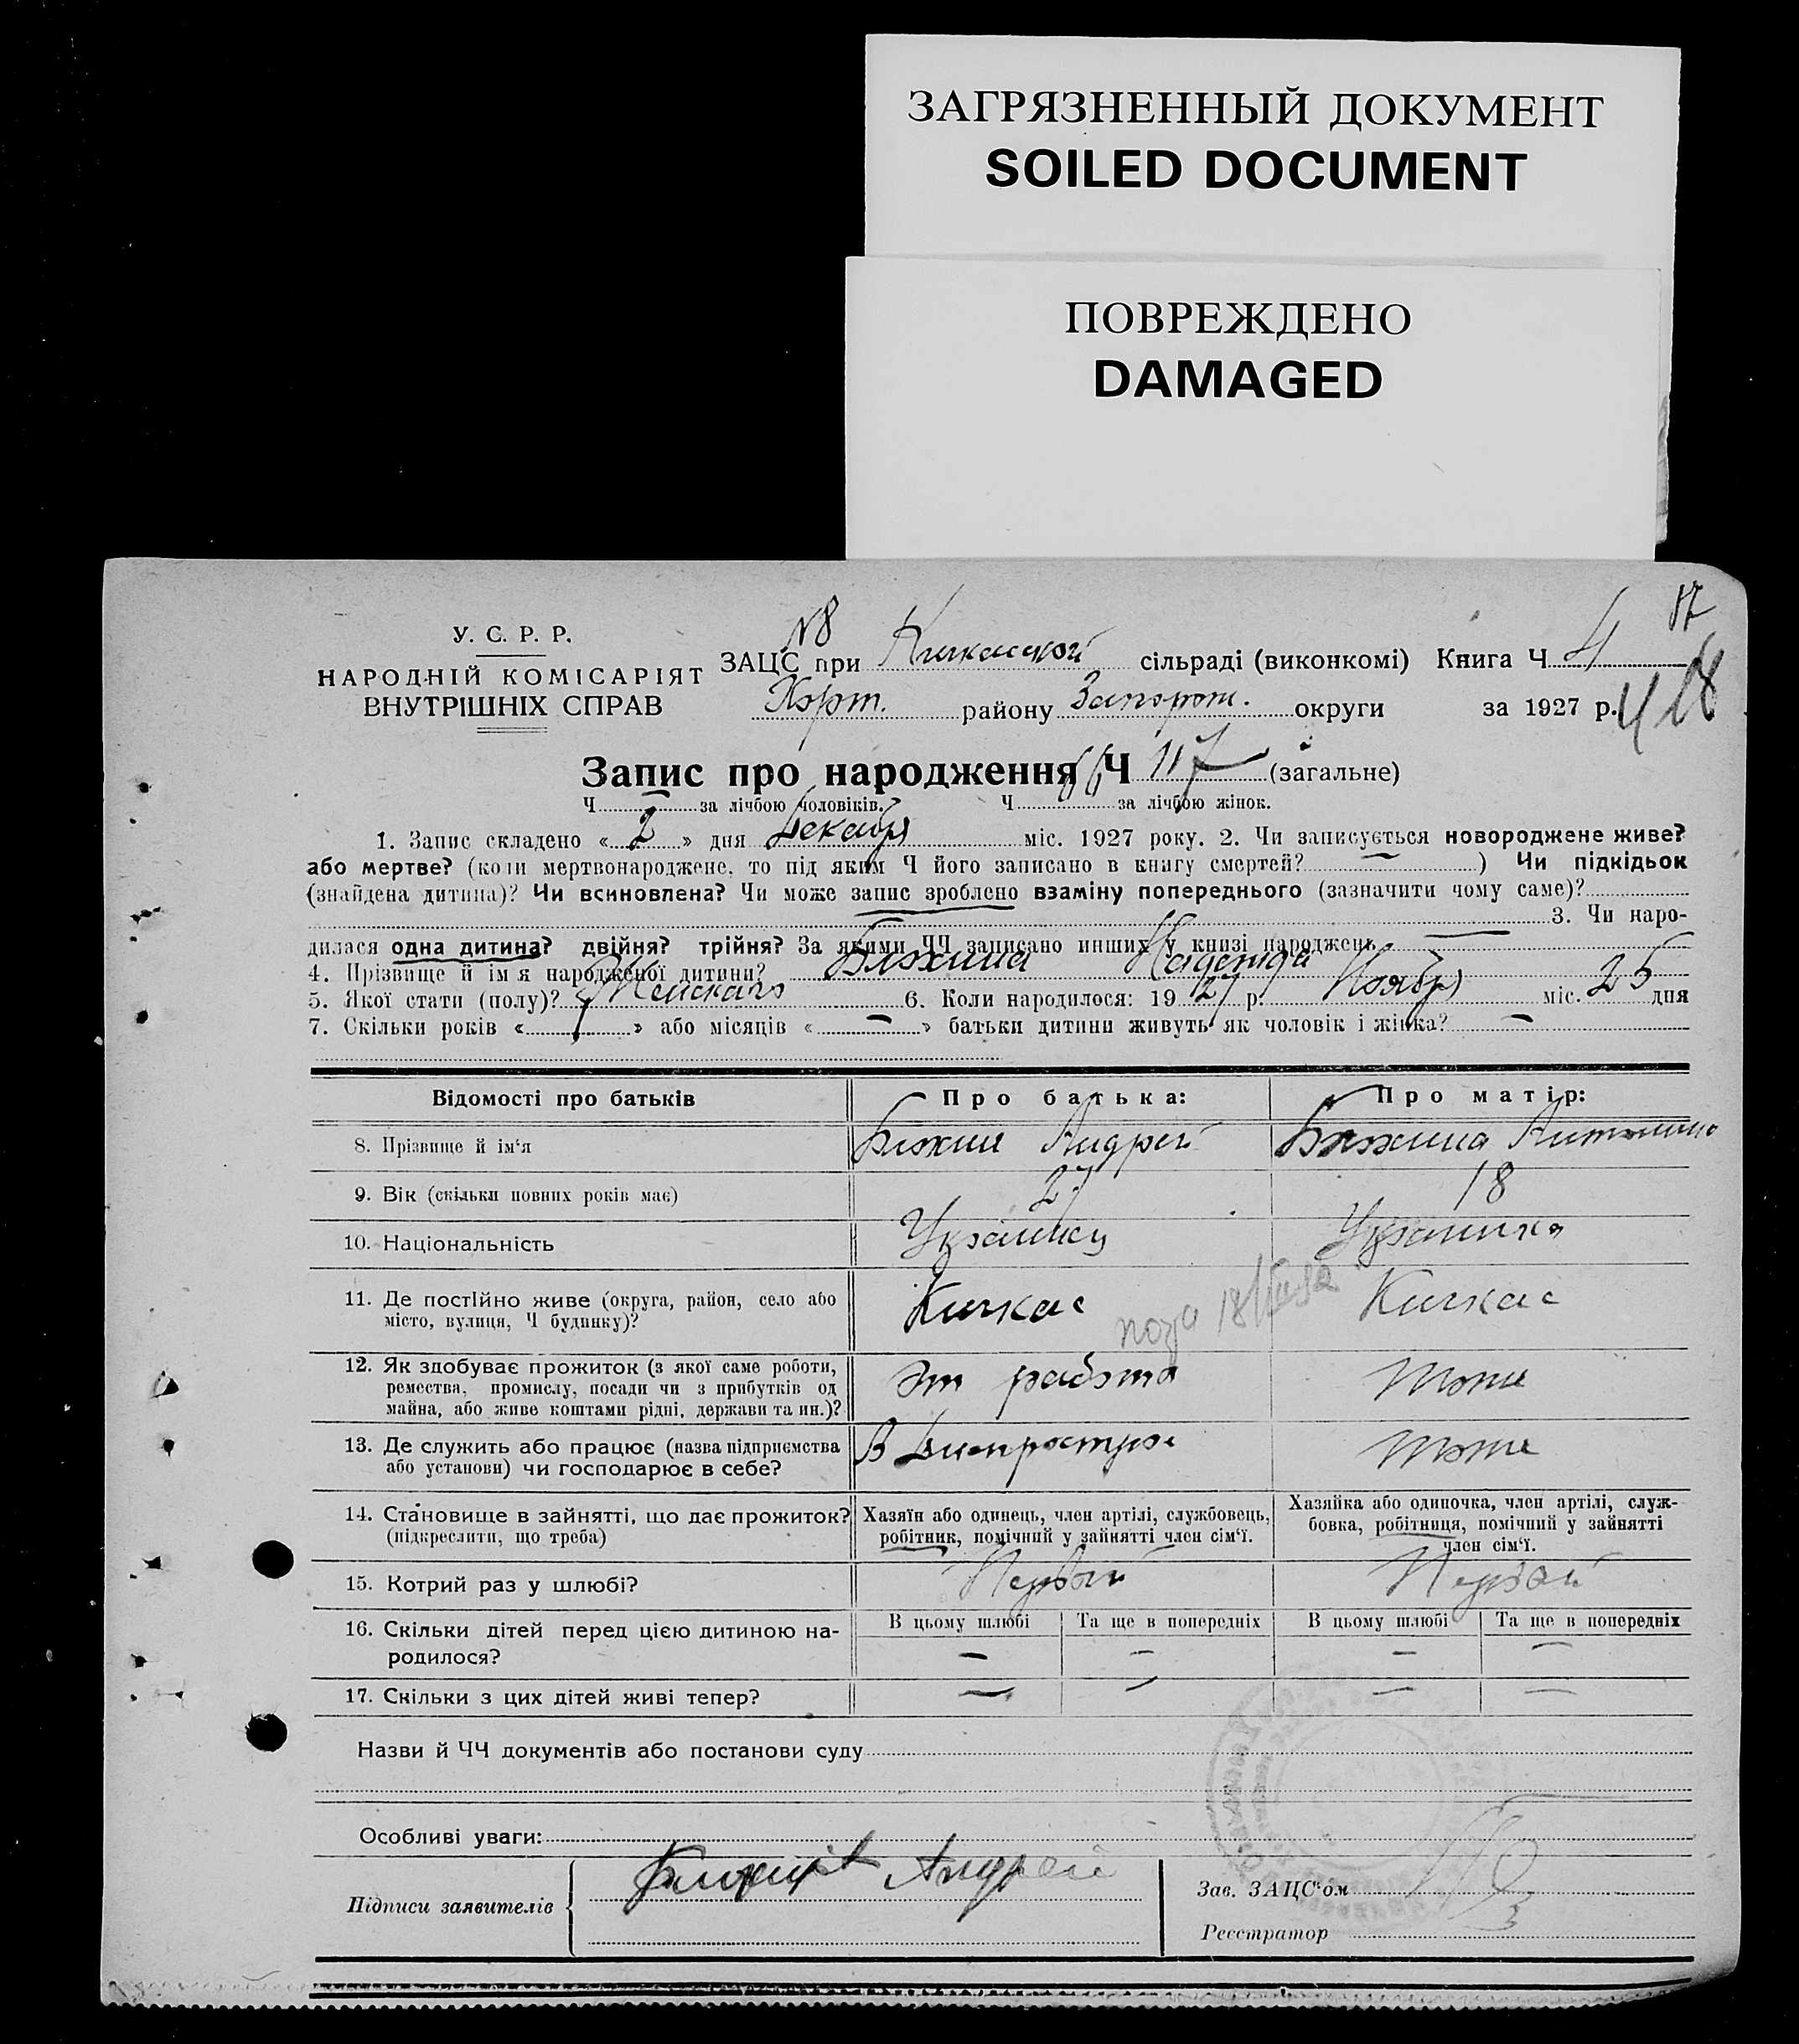 ЗАГРЯЗНЕННЫЙ ДОКУМЕНТ
SOILED DOCUMENT
ПОВРЕЖДЕНО
DAMAGED
17
У. С. Р. Р.
НАРОДНІЙ КОМІСАРІЯТ
ВНУТРІШНІХ СПРАВ
№8
ЗАЦС при Кичкаской сільраді (виконкомі) Книга Ч. 4
Хорт. району Запорож. округи за 1927 р.
Запис про народження Ч 117 (загальне)
Ч. за лічбою чоловіків. Ч. 66 за лічбою жінок.
1. Запис складено « 2 » дня Декабря міс. 1927 року. 2. Чи записується новороджене живе?
або мертве? (коли мертвонароджене, то під яким Ч його записано в книгу смертей? — ) Чи підкідьок
(знайдена дитина)? Чи всиновлена? Чи може запис зроблено взаміну попереднього (зазначити чому саме)?
3. Чи наро-
дилася одна дитина? двійня? трійня? За якими ЧЧ записано инших у книзі народжень
4. Прізвище й ім'я народженої дитини? Блохина Надежда
5. Якої стати (полу)? Женскаго 6. Коли народилося: 1927 р. Ноябр міс. 25 дня
7. Скільки років « » або місяців « — » батьки дитини живуть як чоловік і жінка? —
Відомості про батьків Про батька: Про матір:
8. Прізвище й ім'я Блохин Андрей Блохина Антонина
9. Вік (скільки повних років має) 27 18
10. Національність Украинец Украинка
11. Де постійно живе (округа, район, село або
місто, вулиця, Ч будинку)? Кичкас Кичкас
12. Як здобуває прожиток (з якої саме роботи,
ремества, промислу, посади чи з прибутків од
майна, або живе коштами рідні, держави та ин.)? От работа тоже
13. Де служить або працює (назва підприємства
або установи) чи господарює в себе? В Днепрострое тоже
14. Становище в зайнятті, що дає прожиток?
(підкреслити, що треба)
Хазяїн або одинець, член артілі, службовець,
робітник, помічний у зайнятті член сім'ї.
Хазяйка або одиночка, член артілі, служ-
бовка, робітниця, помічний у зайнятті
член сім'ї.
15. Котрий раз у шлюбі? Первый Первый
16. Скільки дітей перед цією дитиною на-
родилося?
В цьому шлюбі Та ще в попередніх В цьому шлюбі Та ще в попередніх
— — — —
17. Скільки з цих дітей живі тепер? — — — —
Назви й ЧЧ документів або постанови суду
Особливі уваги:
Підписи заявителів Андрей
Зав. ЗАЦС'ом
Реєстратор